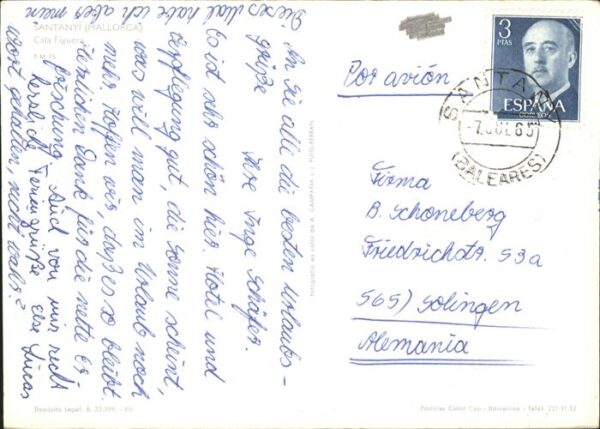 SANTANYI (MALLORCA)
Cala Figuera
An Sie alle die besten Urlaubs-
grüße
Ihre Inge Schäfer.
Es ist sehr schön hier. Hotel und
Verpflegung gut, die Sonne scheint,
was will man im Urlaub noch
mehr. Hoffen wir, daß es so bleibt.
Herzlichen Dank für die nette Er-
frischung. Auch von mir recht
herzliche Feriengrüße Else
Dieses Mal habe ich aber mein
Wort gehalten, nicht wahr?
Fotografía en color de A. CAMPAÑÁ y J. PUIG-FERRAN
Depósito Legal. B. 33.309 - VII
3
PTAS
ESPAÑA
CORREOS
SANTANY
-7.JUL 65
(BALEARES)
Por avión
Firma
B. Schöneberg
Friedrichstr. 53a
565) Solingen
Alemania
Postales Color Cyp - Barcelona - Teléf. 221 11 52